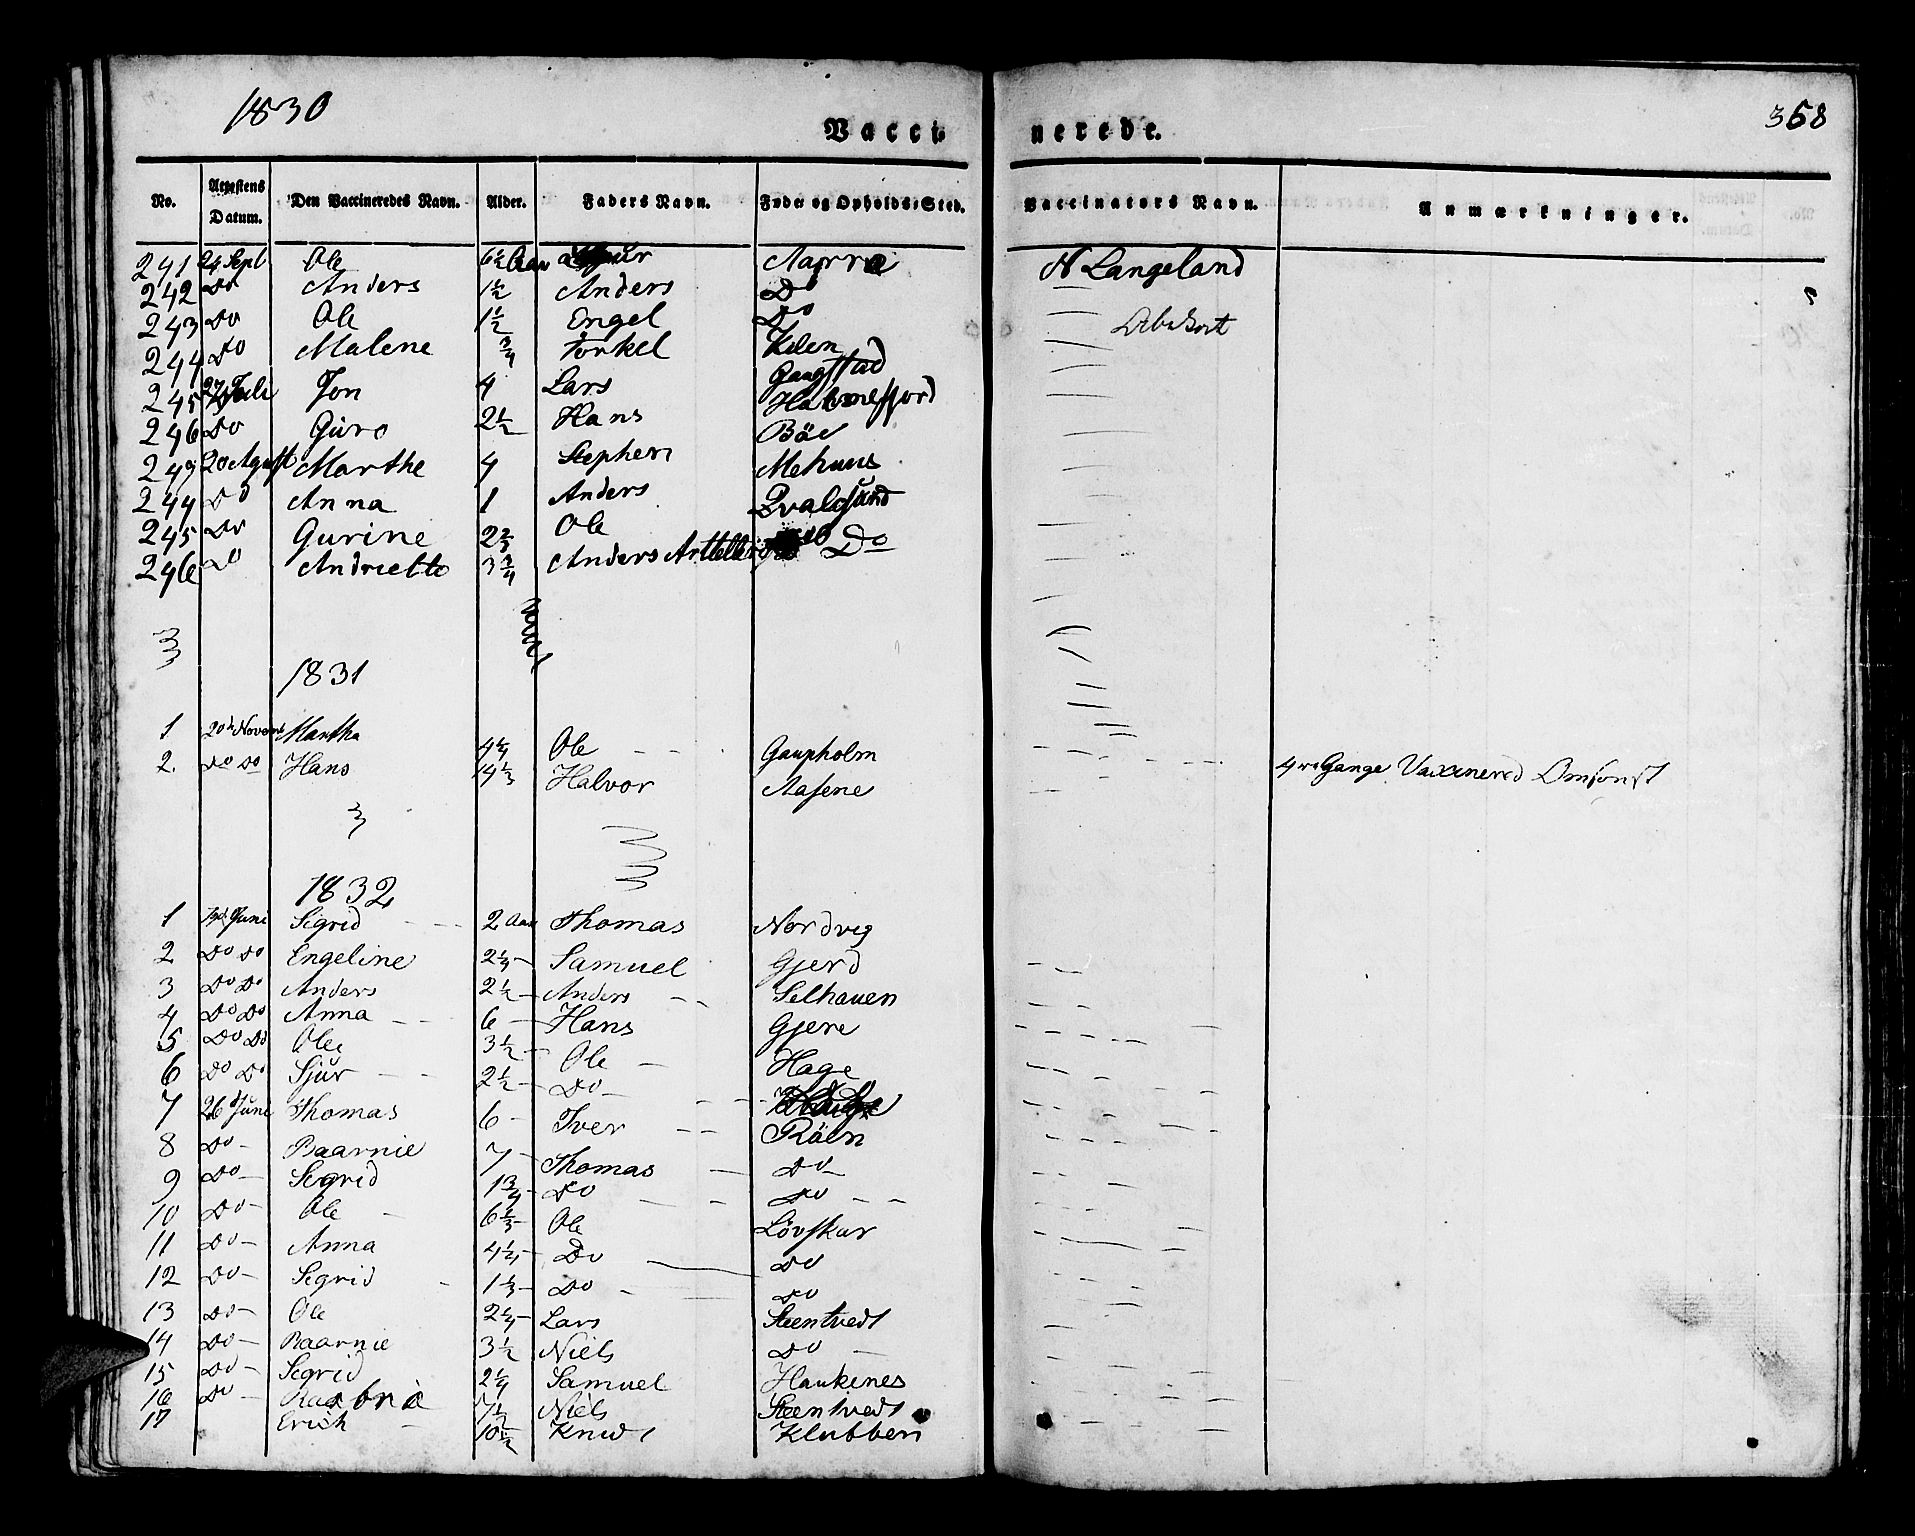 1830
Vacci nerede.
368
No. Attestens Datum. Den Vaccineredes Navn. Alder. Faders Navn. Føde- og Opholds-Sted. Vaccinators Navn. Anmærkninger.
241 24 Sept Ole 6½ Aar N Langeland
242 Do Anders 1½ Anders Do
243 Do Ole 1½ Engel Do
244 Do Malene ¾ Torkel
245 27 Juli Jon 4 Lars Gaugstad
246 Do Guro 2½ Hans
Bäe
20 Agust Marthe 4 Stephen Mehuus
244 Do Anna 1 Anders Qvalesund
245 Do Gurine 2⅔ Ole
246 Do Andriette 3¾ Anders Do
1831
1 20de Novem Martha 4¼ Ole Gaupholm
2. Do Do Hans 14½ Halvor Aasene 4re Gange Vaxinered Omsonst
1832
1 Juni Sigrid 2 Aar Thomas Nordvig
2 Do Do Engeline 2¼ Samuel Gjerd
3 Do Do Anders 2½ Anders Selhauen
4 Do Do Anna 6 Hans Gjere
5 Do Do Ole 3½ Ole Hage
6 Do Do Sjur 2½ Do
7 26 Juni Thomas 6 Iver Röen
8 Do Baarnie 7 Thomas Do
9 Do Sigrid 1¾ Do Do
10 Do Ole 6⅓ Ole Lövskar
11 Do Anna 4¼ Do Do
12 Do Sigrid 1⅓ Do Do
13 Do Ole 2¼ Lars Steentvedt
14 Do Baarnie 3½ Niels Do
15 Do Sigrid 2¼ Samuel Haukenes
16 Do 7½ Niels Steentvedt
17 Erich 10½ Knud Klubben